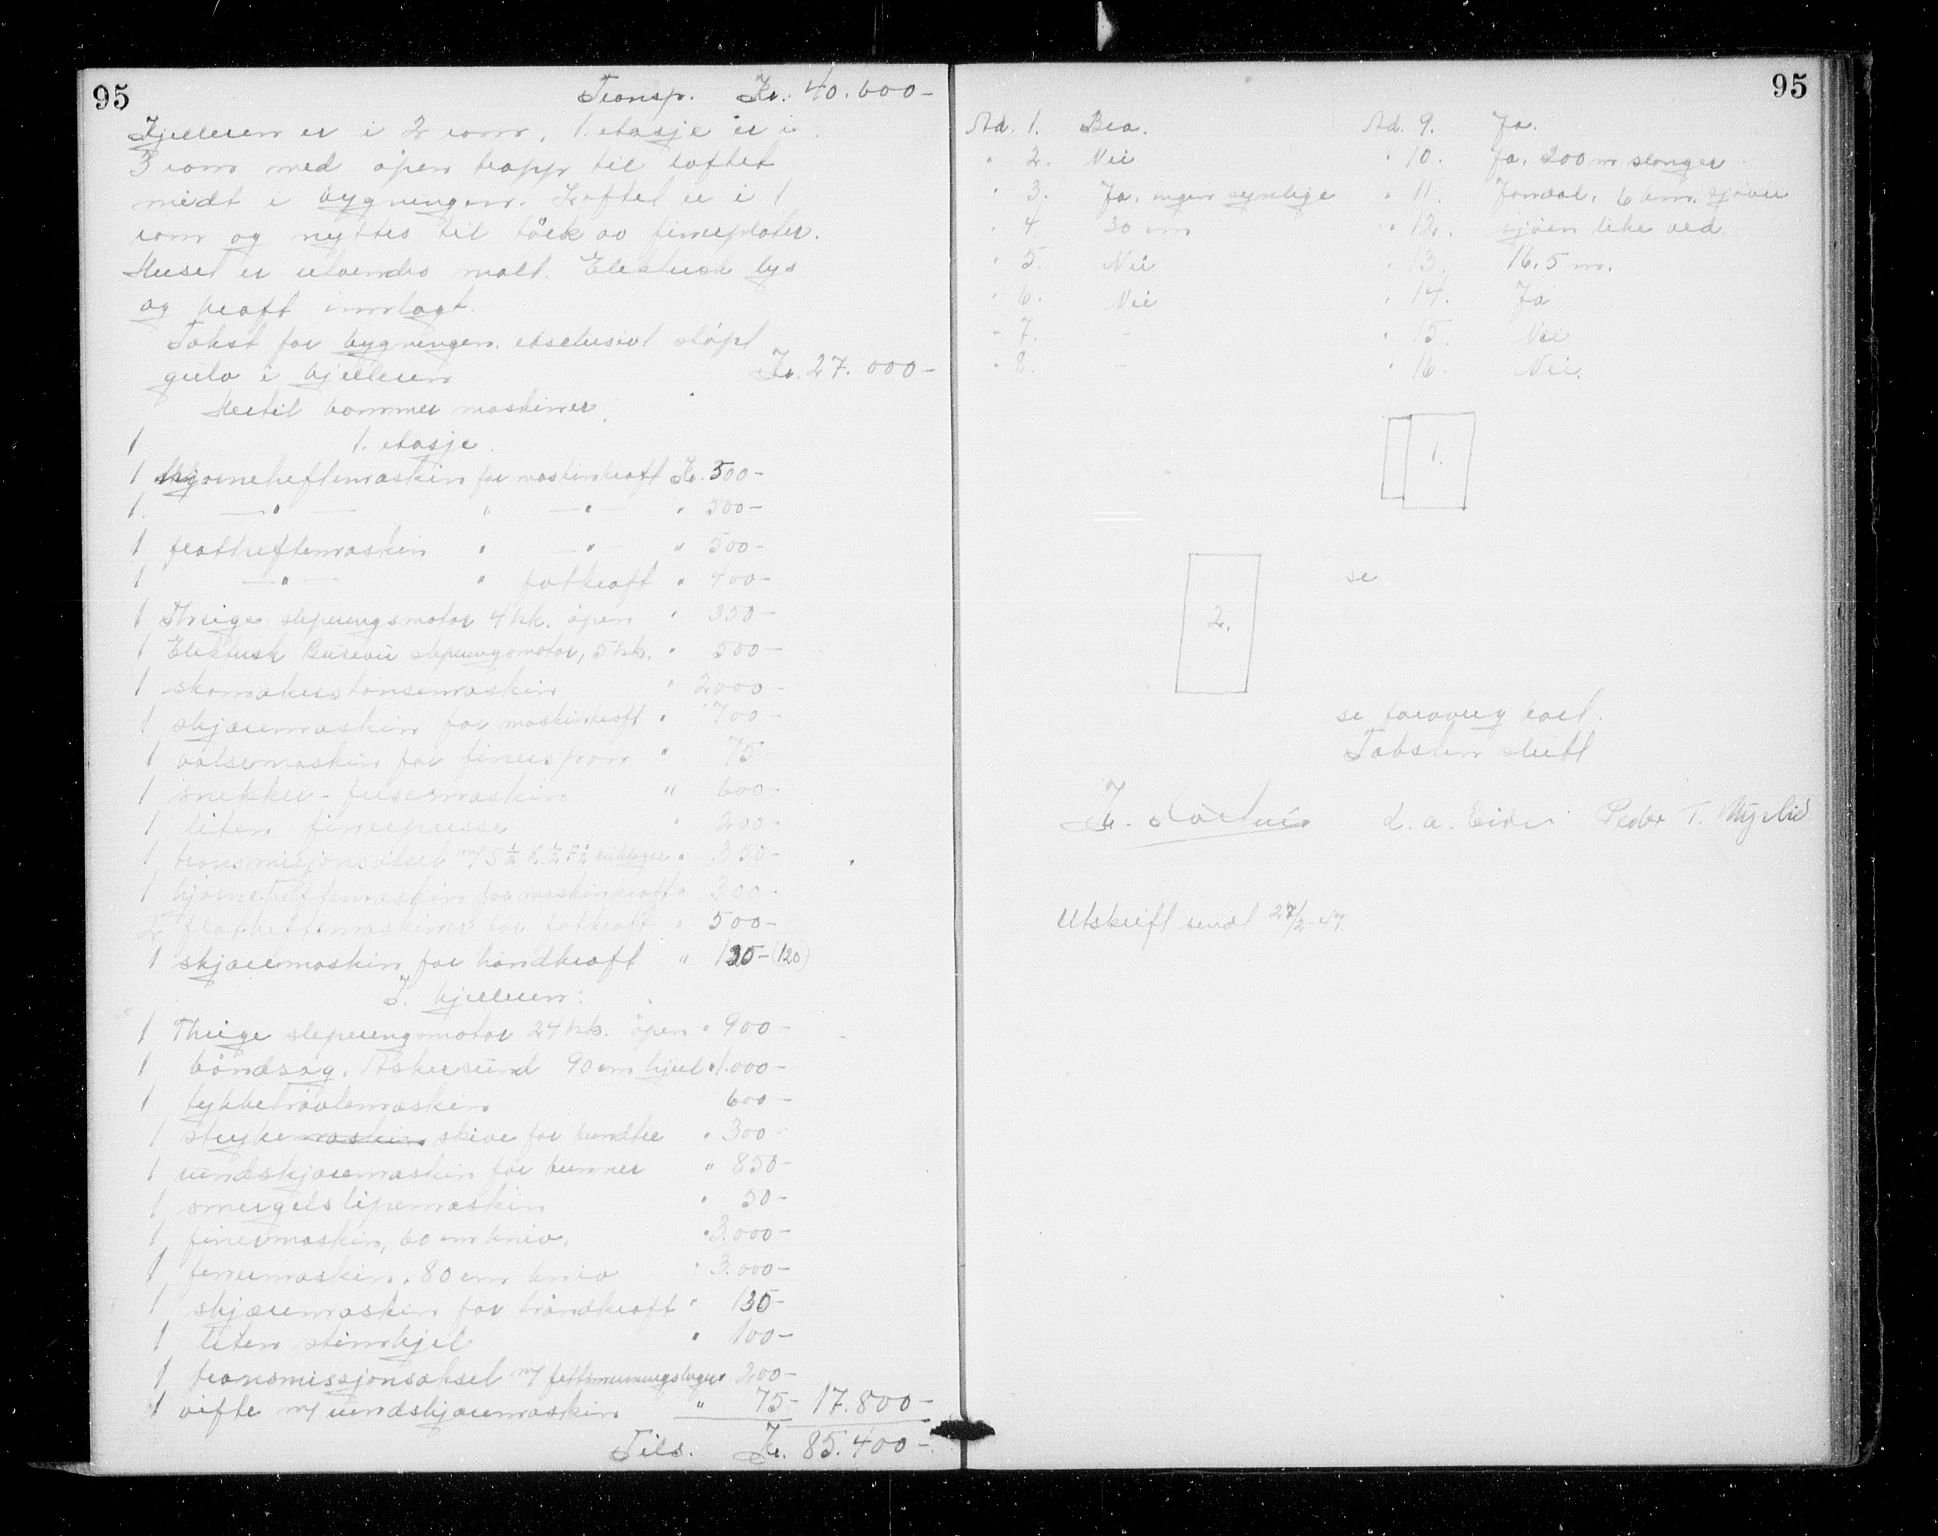 95
Transp. Kr. 40.600-
Kjelleren er i 2 rom, 1. etasje er i
3 rom med åpen trapp til loftet
midt i bygningen. Loftet er i 1
rom og nyttes til törk av finerplater.
Huset er utvendis malt. Elektrisk lys
og kraft innlagt.
Takst for bygningen, eksclusivt støpt
gulv i kjelleren Kr. 27.000-
Hertil kommer maskiner.
1 1. etasje.
1 hjørneheftemaskin for maskinkraft Kr. 500-
1. —"— " —"— " 500-
1 flatheftemaskin " —"— " 500-
1 —"— " fotkraft " 400-
1 Thrige slepringsmotor 4 hk. åpen " 350-
1 Elektrisk Bureau slepringsmotor, 5 hk. " 500-
1 skomakerstansemaskin " 2000-
1 skjæremaskin for maskinkraft " 700-
1 valsemaskin for finerspon " 75-
1 snekker-fresemaskin " 600-
1 liten finerpresse " 200-
1 transmisjonsaksel m/ S ½ K. ½ F ½ kulelager " 350-
1 hjørneheftemaskin for maskinkraft " 300-
2 flatheftemaskiner for fotkraft " 500-
1 skjæremaskin for håndkraft " 120- (120)
I kjelleren:
1 Thrige slepringsmotor 24 hk. åpen " 900-
1 båndsag, Askersund 90 cm hjul " 1.000-
1 tykkelhøvlemaskin 600-
1 strykemaskin skive for rundtre " 300-
1 rundskjæremaskin for bunner " 850-
1 smergelslipemaskin " 50-
1 finermaskin, 60 cm kniv, " 3.000-
1 finermaskin, 80 cm kniv " 3.000-
1 skjæremaskin for håndkraft " 135-
1 liten stimkjel " 100-
1 transmissjonsaksel m/ fettsmurningslager " 200-
1 vifte m/ rundskjæremaskin " 75- 17.800-
Tils. Kr. 85.400-
95
Ad. 1. Bra. Ad. 9. Ja.
" 2. Nei " 10. Ja, 200 m slanger.
" 3. Ja, ingen synlige " 11. Jondal, 6 km. sjøvei
" 4. 30 cm " 12. sjøen like ved.
" 5. Nei " 13. 16.5 m.
" 6. Nei " 14. Ja
" 7. - " 15. Nei
" 8. - " 16. Nei.
1.
2.
se
se forøvrig kart.
Taksten slutt
L. A. Eide Peder T. Myrlid
Utskrift sendt 27/2-47.